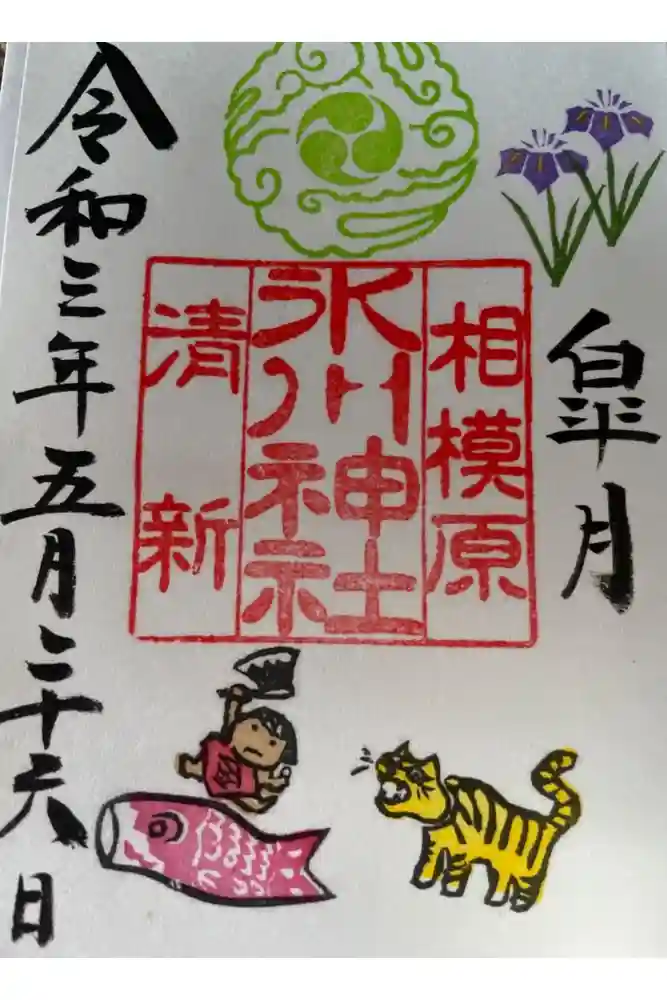 皐月
相模原
氷川神社
清新
令和三年五月二十六日